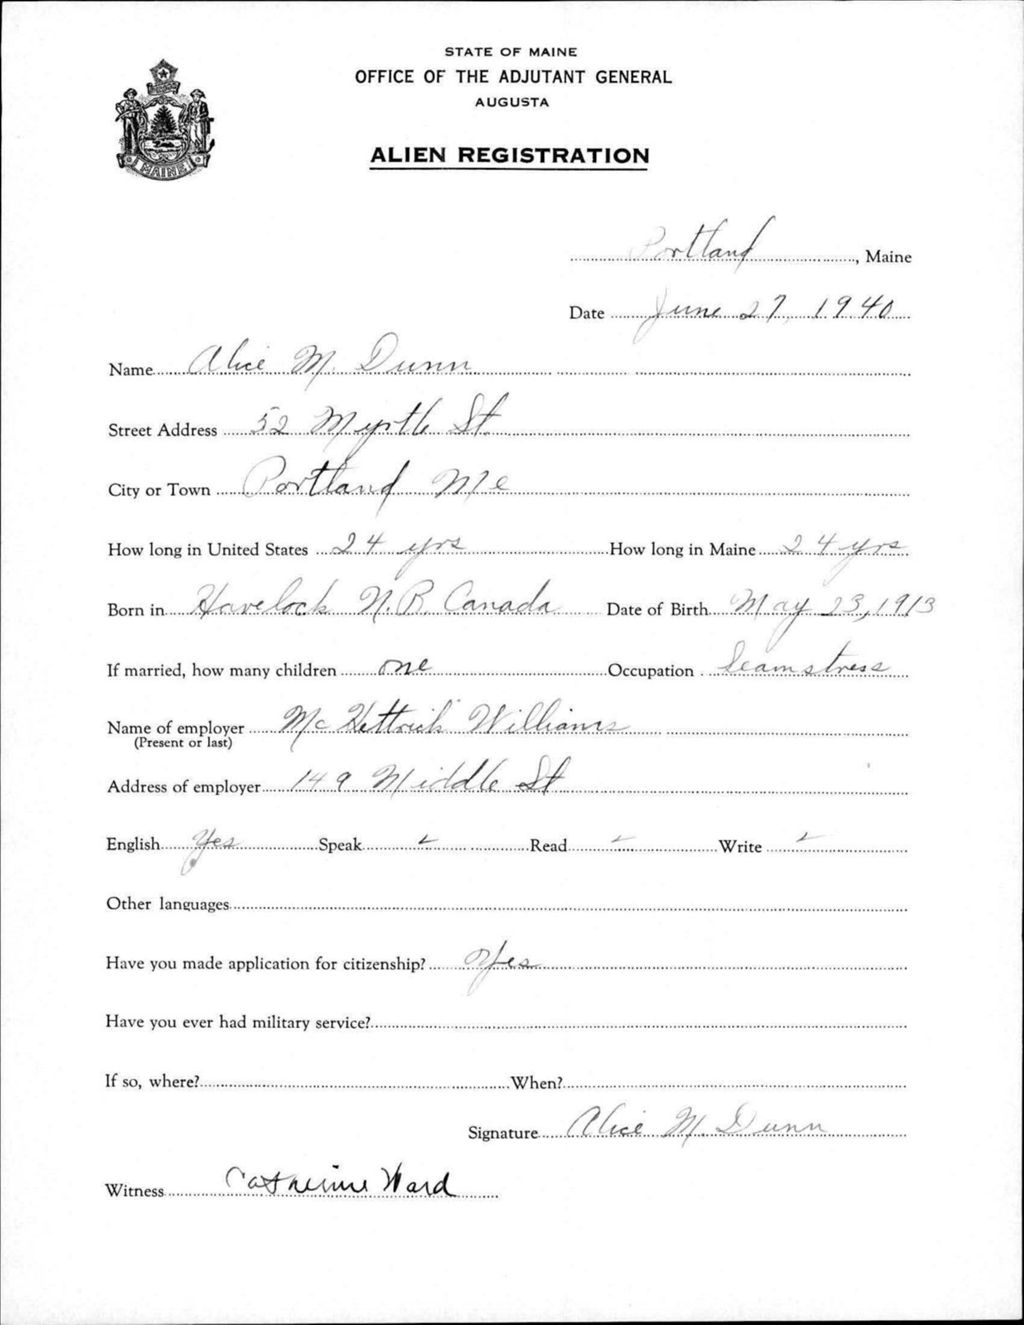 STATE OF MAINE
OFFICE OF THE ADJUTANT GENERAL
AUGUSTA
ALIEN REGISTRATION
MAINE
Portland, Maine
Date June 27, 1940
Name Alice M. Dunn
Street Address 52 Myrtle St.
City or Town Portland Me
How long in United States 24 yrs How long in Maine 24 yrs
Born in Havelock N.B. Canada Date of Birth May 23, 1913
If married, how many children one Occupation Seamstress
Name of employer Mc Hettrick Williams
(Present or last)
Address of employer 149 Middle St
English Yes Speak ✓ Read ✓ Write ✓
Other languages
Have you made application for citizenship? Yes
Have you ever had military service?
If so, where? When?
Signature Alice M. Dunn
Witness Catherine Ward